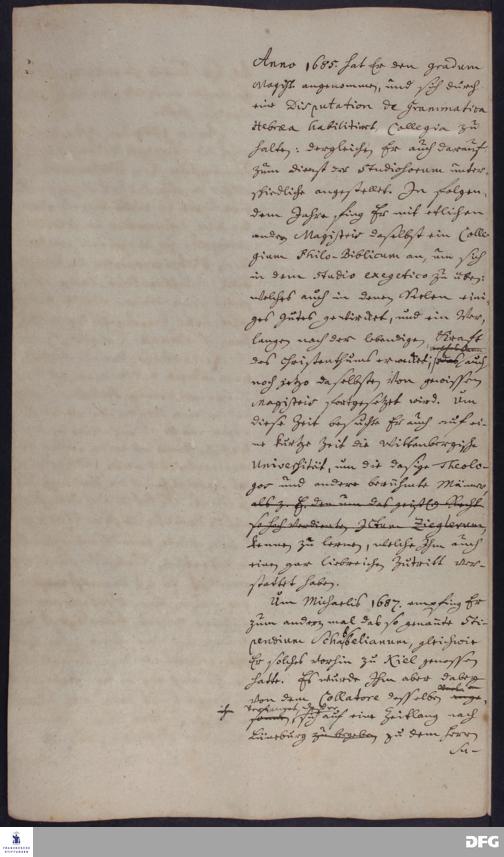 Anno 1685. hat Er den gradum
Magist. angenommen, und sich durch
eine Disputation de Grammatica
Hebræa habilitiret, Collegia zu
halten: dergleichen Er auch darauf
zum dienst der Studiosorum unter-
schiedliche angestellet. In folgen-
dem Jahre fing Er mit etlichen
andern Magistris daselbst ein Colle-
gium Philo-Biblicum an, um sich
in dem Studio exegetico zu üben:
welches auch in denen Seelen eini-
ges Gutes gewircket, und ein Ver-
langen nach der lebendigen Krafft
des Christenthums erwecket; auch
noch jetzo daselbsten von gewissen
Magistris fortgesetzet wird. Um
diese Zeit besuchte Er auch auf ei-
ne kurtze Zeit die Wittenbergische
Universität, um die dasige Theolo-
gos und andere berühmte Männer,
als z. E. den um das geistl. Recht
so hoch verdienten JCtum Zieglerum,
kennen zu lernen, welche Ihm auch
einen gar liebreichen Zutritt ver-
stattet haben.
Um Michaelis 1687. empfing Er
zum andern mal das so genante Sti-
pendium Schabbelianum, gleichwie
Er solches vorhin zu Kiel genossen
hatte. Es wurde Ihm aber dabey
von dem Collatore desselben
sich auf eine Zeitlang nach
Lüneburg zu begeben zu dem Herrn
Su-
FRANCKESCHE STIFTUNGEN
DFG